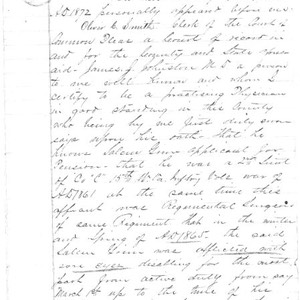 A.D. 1872 Personally appeared before me
Oliver E. Smith Clerk of the Court of
Common Pleas a court of record in
and for the County and State afore
said James J. Johnston M.D. a person
to me well known and whom I
certify to be a practising Physician
in good standing in this County
who being by me first duly sworn
says upon his oath that he
knows Salem Linn applicant for
Pension that he was a 2nd Lieut
of Co "E" 15th W.Va Infty Vols war of
A.D. 1861 at the same time this
affiant was Regimental Surgeon
of same Regiment that in the winter
and Spring of A.D. 1865 the said
Salem Linn was afflicted with
sore eyes disabling for the most
part from active duty from say
March 1st up to the time of his